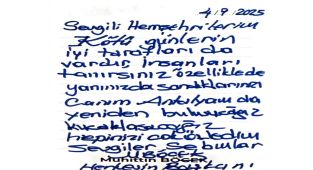 4.9.2025
Sevgili Hemşehrilerim
Kötü günlerin
iyi tarafları da
vardır insanları
tanırsınız özelliklede
yanınızda sandıklarınızı
Canım Antalyamda
yeniden buluşacağız
kucaklaşacağız
hepinizi çok özledim
Sevgiler Saygılar
M BÖCEK
Muhittin BÖCEK
Herkesin Başkanı